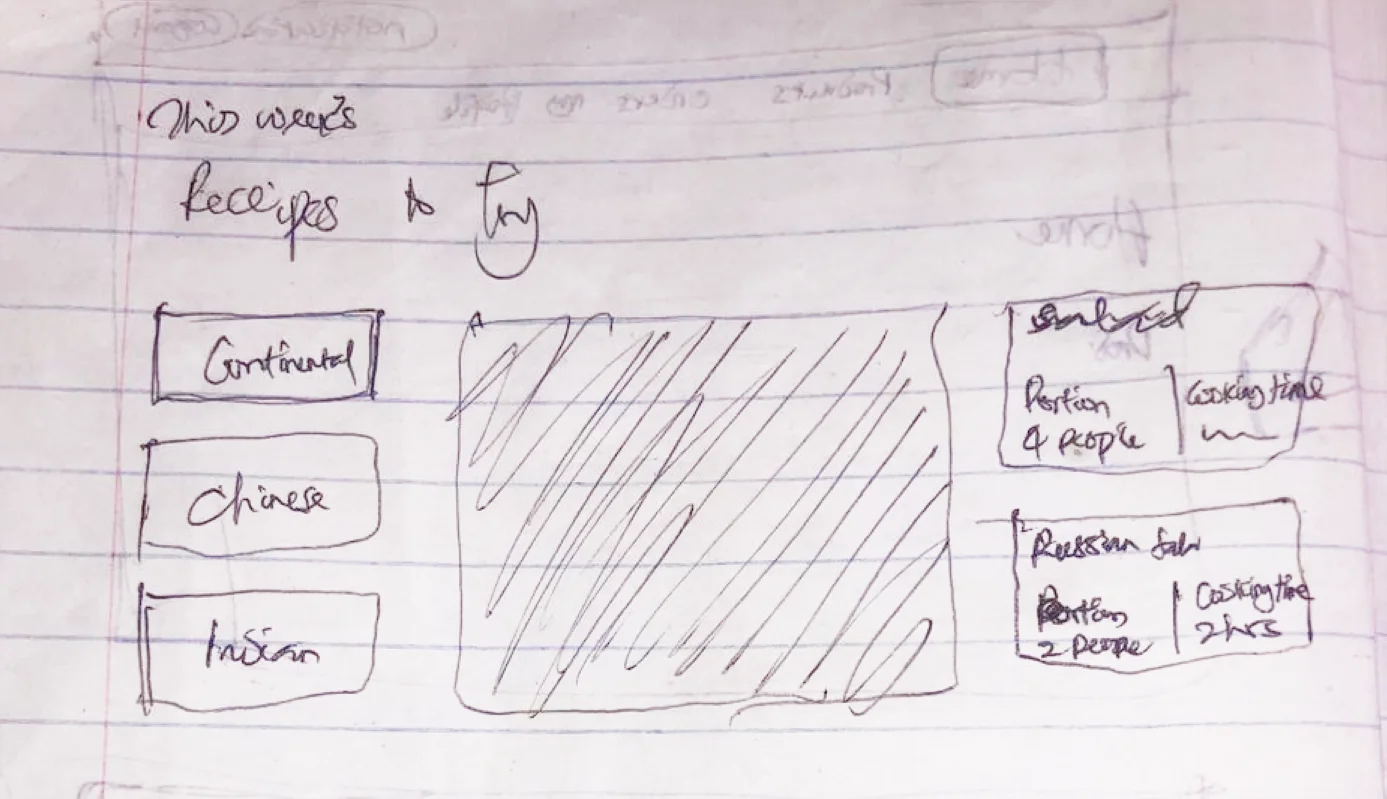 This week's
Receipes to Try
Continental
Chinese
Indian
Portion
4 people
Cooking time
Russian
Portion
2 people
Cooking time
2 hrs